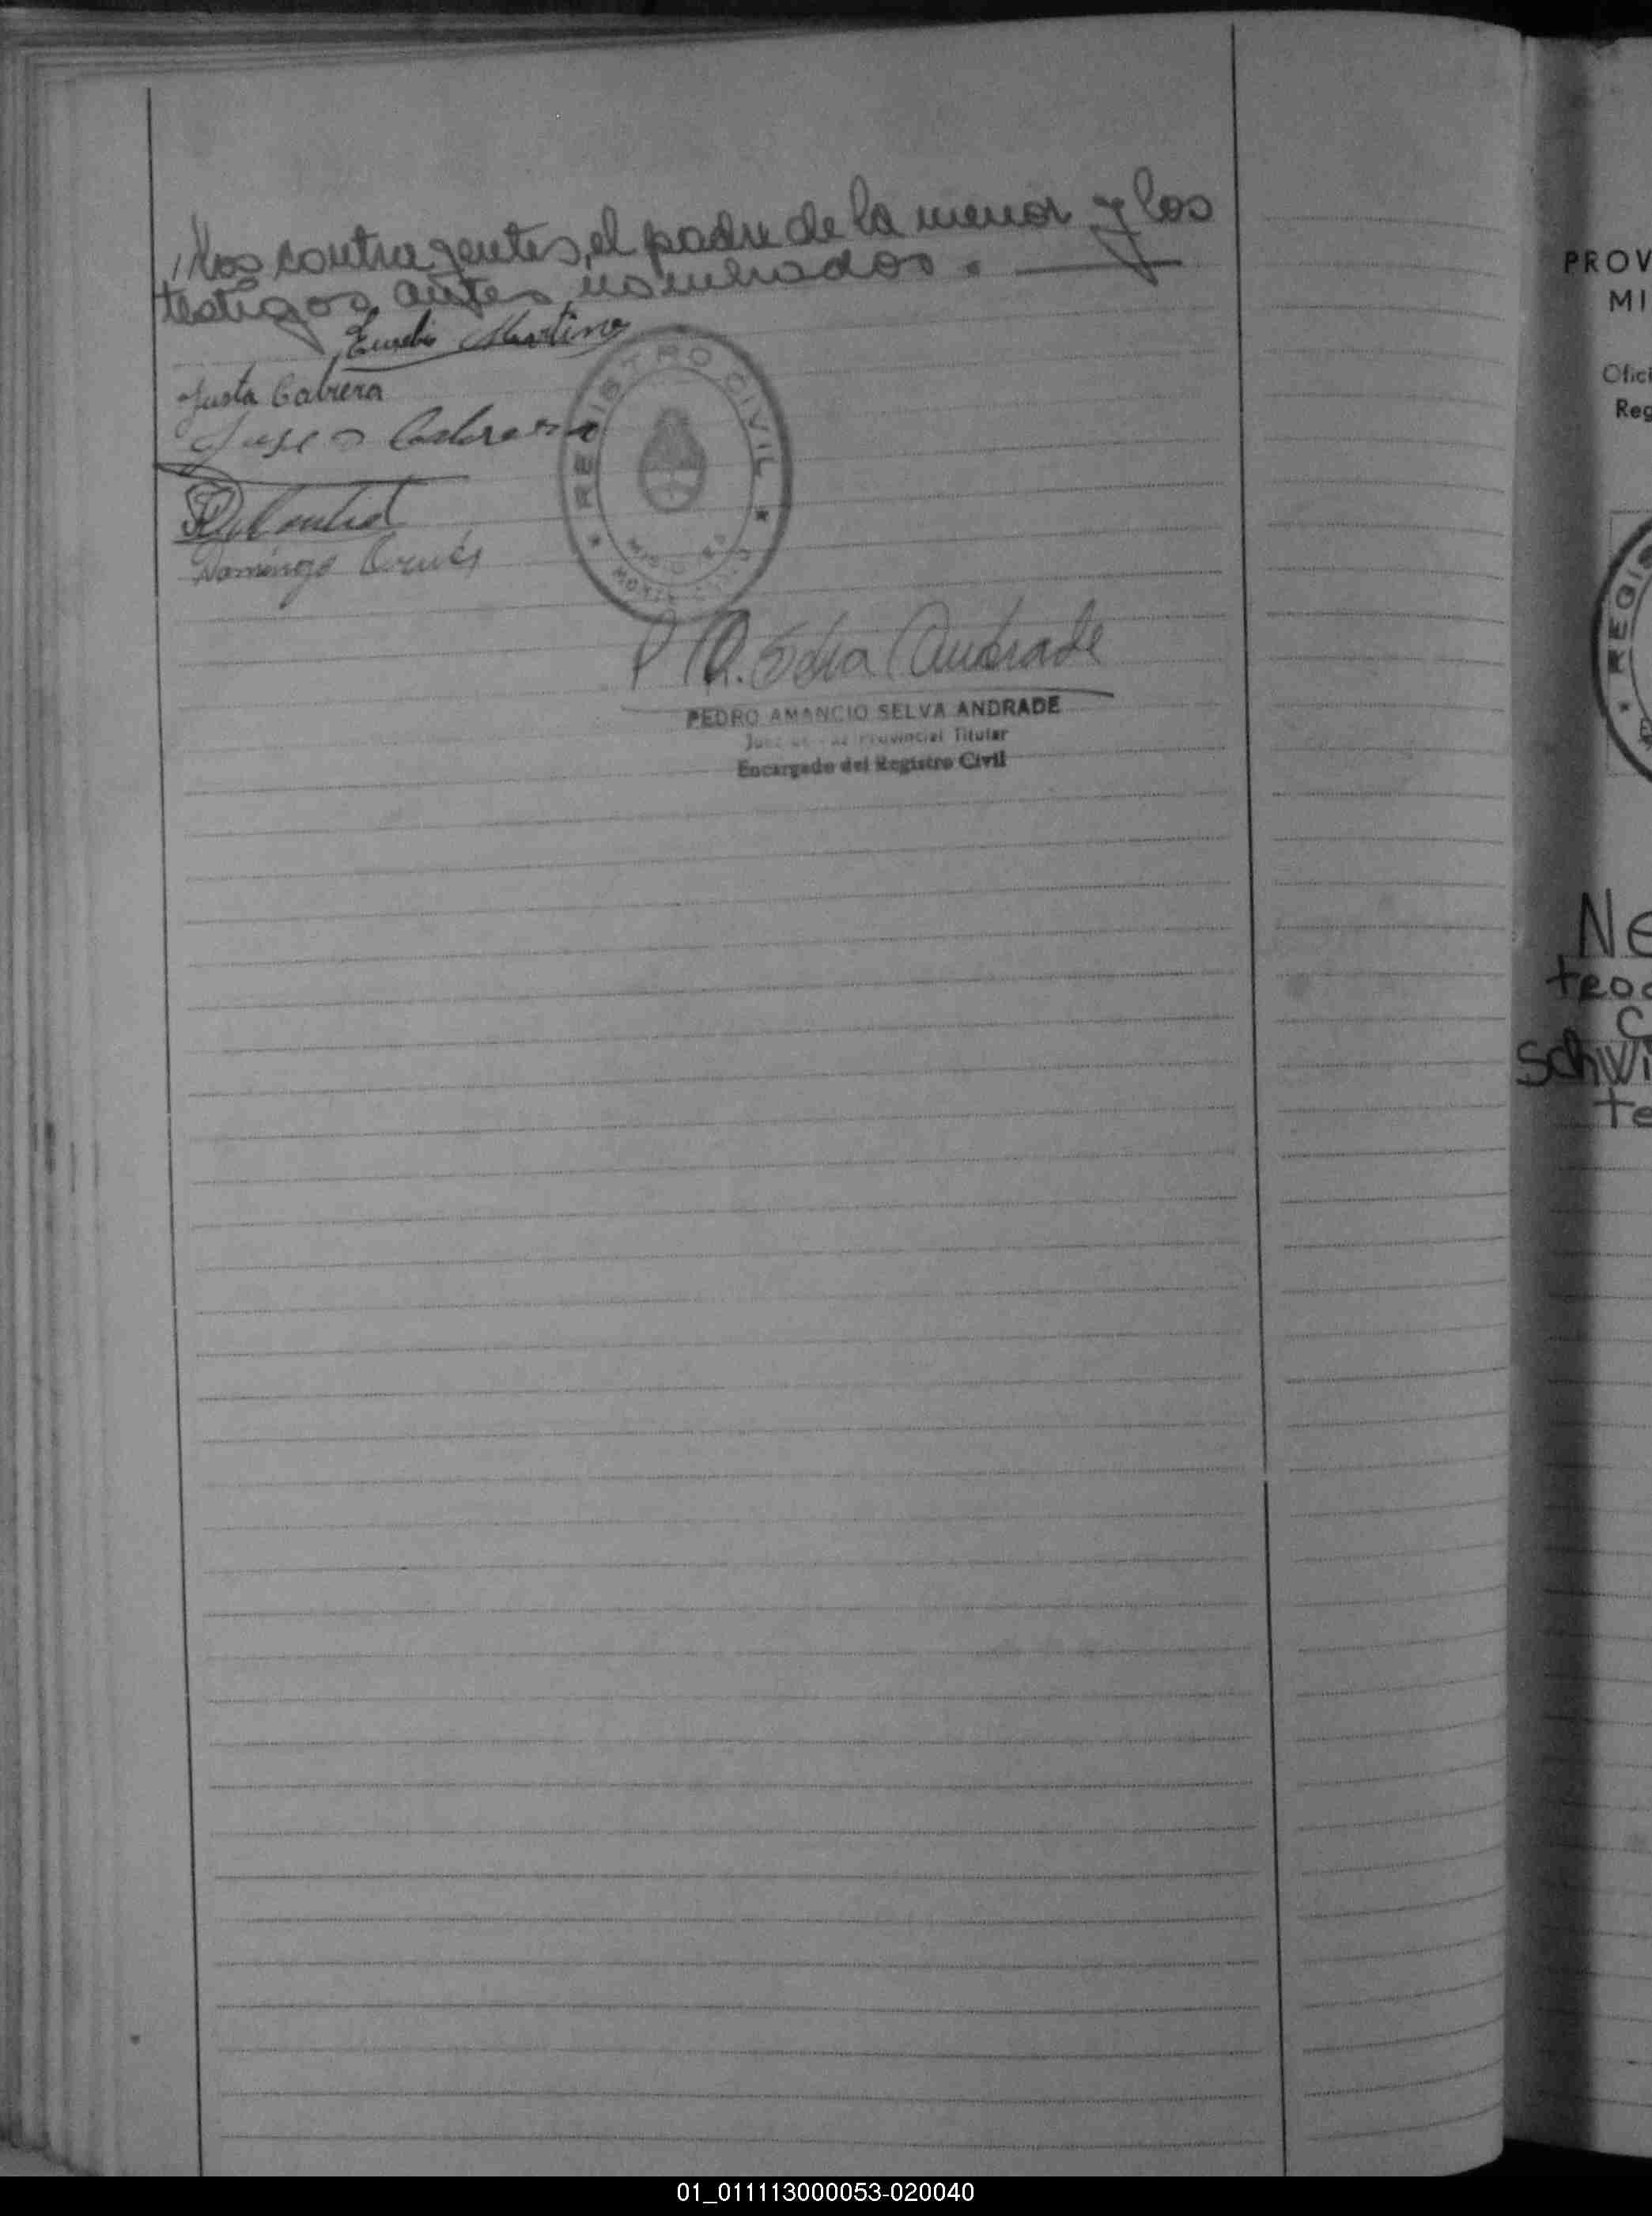 los contrayentes, el padre de la menor y los
testigos antes nombrados.
Martinez
Justa Cabrera
Cabrera
Domingo
REGISTRO CIVIL
MONTE
P A. Selva Andrade
PEDRO AMANCIO SELVA ANDRADE
Provincial Titular
Encargado del Registro Civil
PROV
MI
Ofici
Reg
REGIS
Ne
teod
C
Schwi
te
01_011113000053-020040